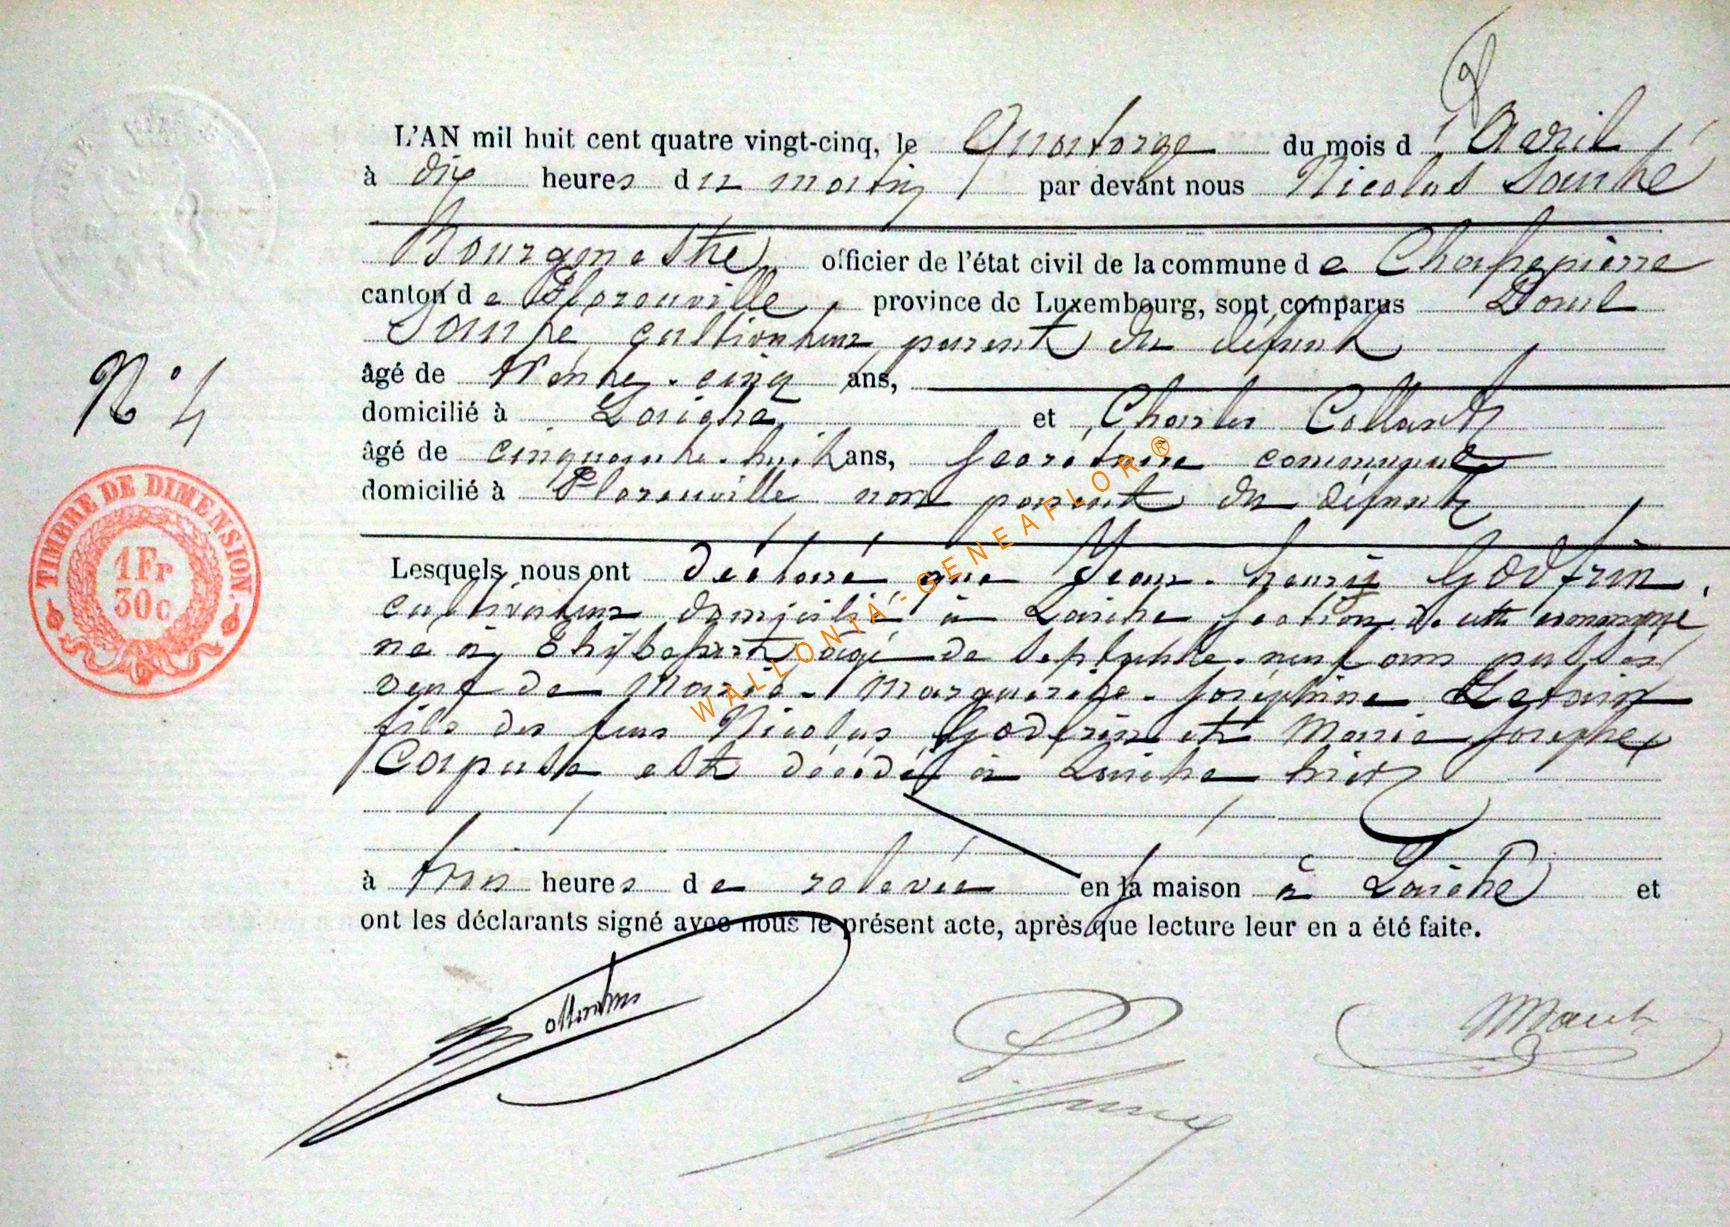 L'AN mil huit cent quatre vingt-cinq, le Quatorze du mois d'Avril
à dix heures du matin par devant nous Nicolas
Bourgmestre officier de l'état civil de la commune de Chassepierre
canton de Florenville, province de Luxembourg, sont comparus
cultivateur, parent du défunt
âgé de trente-cinq ans,
domicilié à et Charles Collard
âgé de cinquante-huit ans, secrétaire communal
domicilié à Florenville non parent du défunt
N° 4
TIMBRE DE DIMENSION.
1Fr
30c
Lesquels nous ont déclaré que Jean-henry Godfrin,
cultivateur domicilié à Laiche section de cette commune
né à âgé de septante-neuf ans
veuf de Marie-Marguerite-Joséphine
fils des feus Nicolas Godfrin et Marie Josephe
est décédé à Laiche hier
à trois heures de relevée en sa maison à Laiche et
ont les déclarants signé avec nous le présent acte, après que lecture leur en a été faite.
WALLONIA-GENEAFLOR®